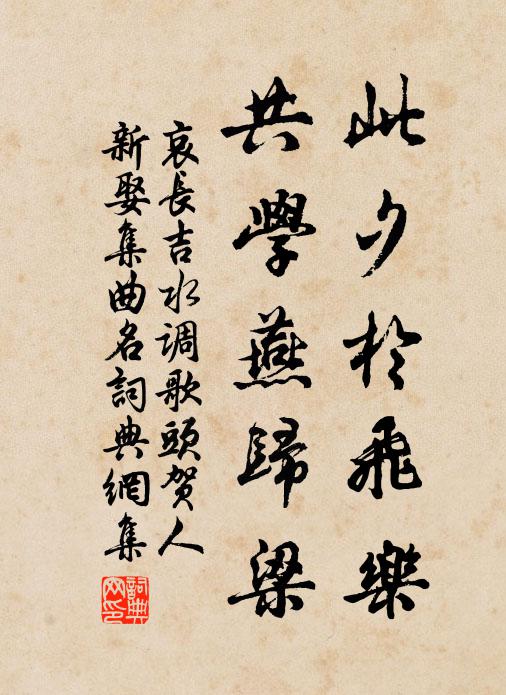 此夕於飛樂
共學燕歸梁
哀長吉水调歌頭賀人
新娶集曲名詞典網集
詞典网印